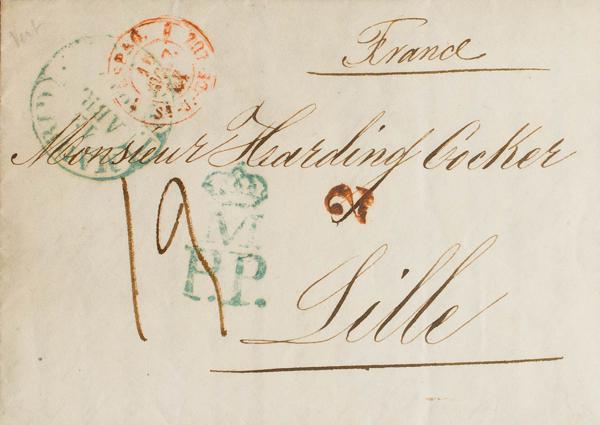 Vert
France
Monsieur Harding Cocker
19
M
P.P.
2
Lille